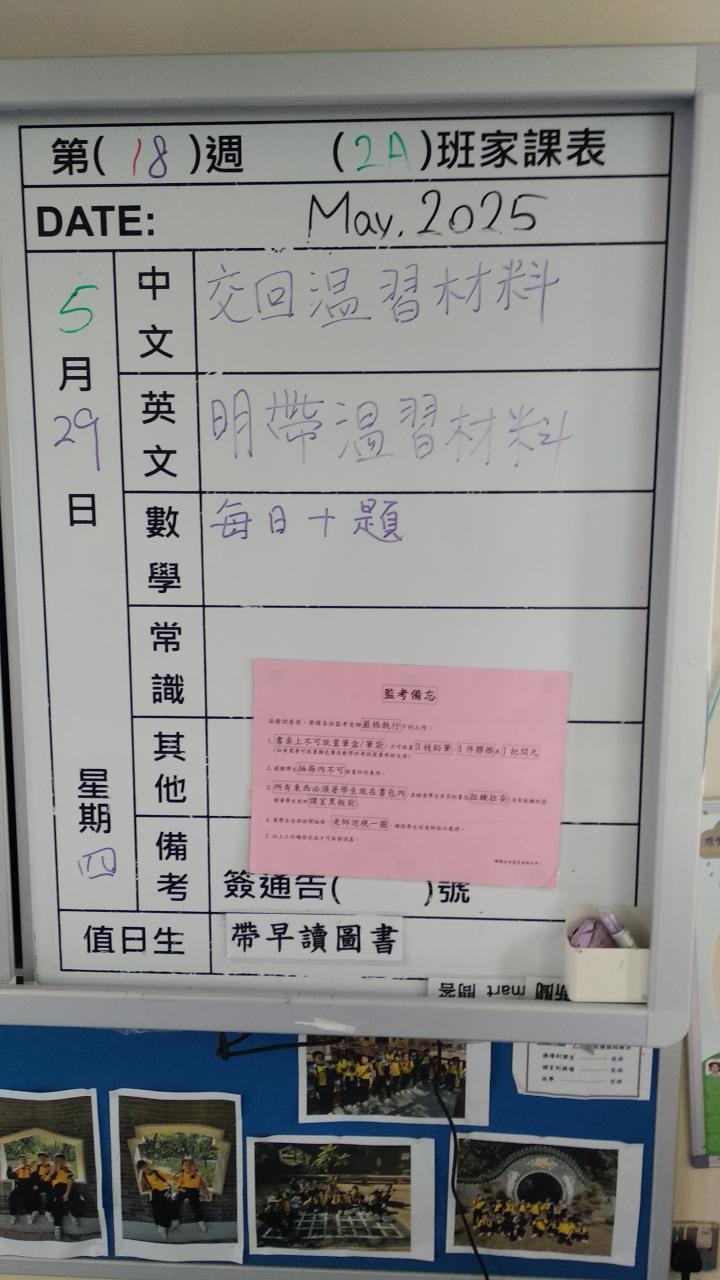 第( 18 )週 ( 2A )班家課表
DATE: May. 2025
5月29日
星期四
中文 交回温習材料
英文 明帶温習材料
數學 每日十題
常識
其他
備考 簽通告( )號
值日生 帶早讀圖書
監考備忘
嚴格執行下列工作：
1. 書桌上不可放置筆盒/筆袋，只可放置3枝鉛筆、1件膠擦及1把間尺
抽屜內不可
所有東西必須著學生放在書包內
拉鏈拉妥
課室黑板前
老師巡視一圈
mart 問答